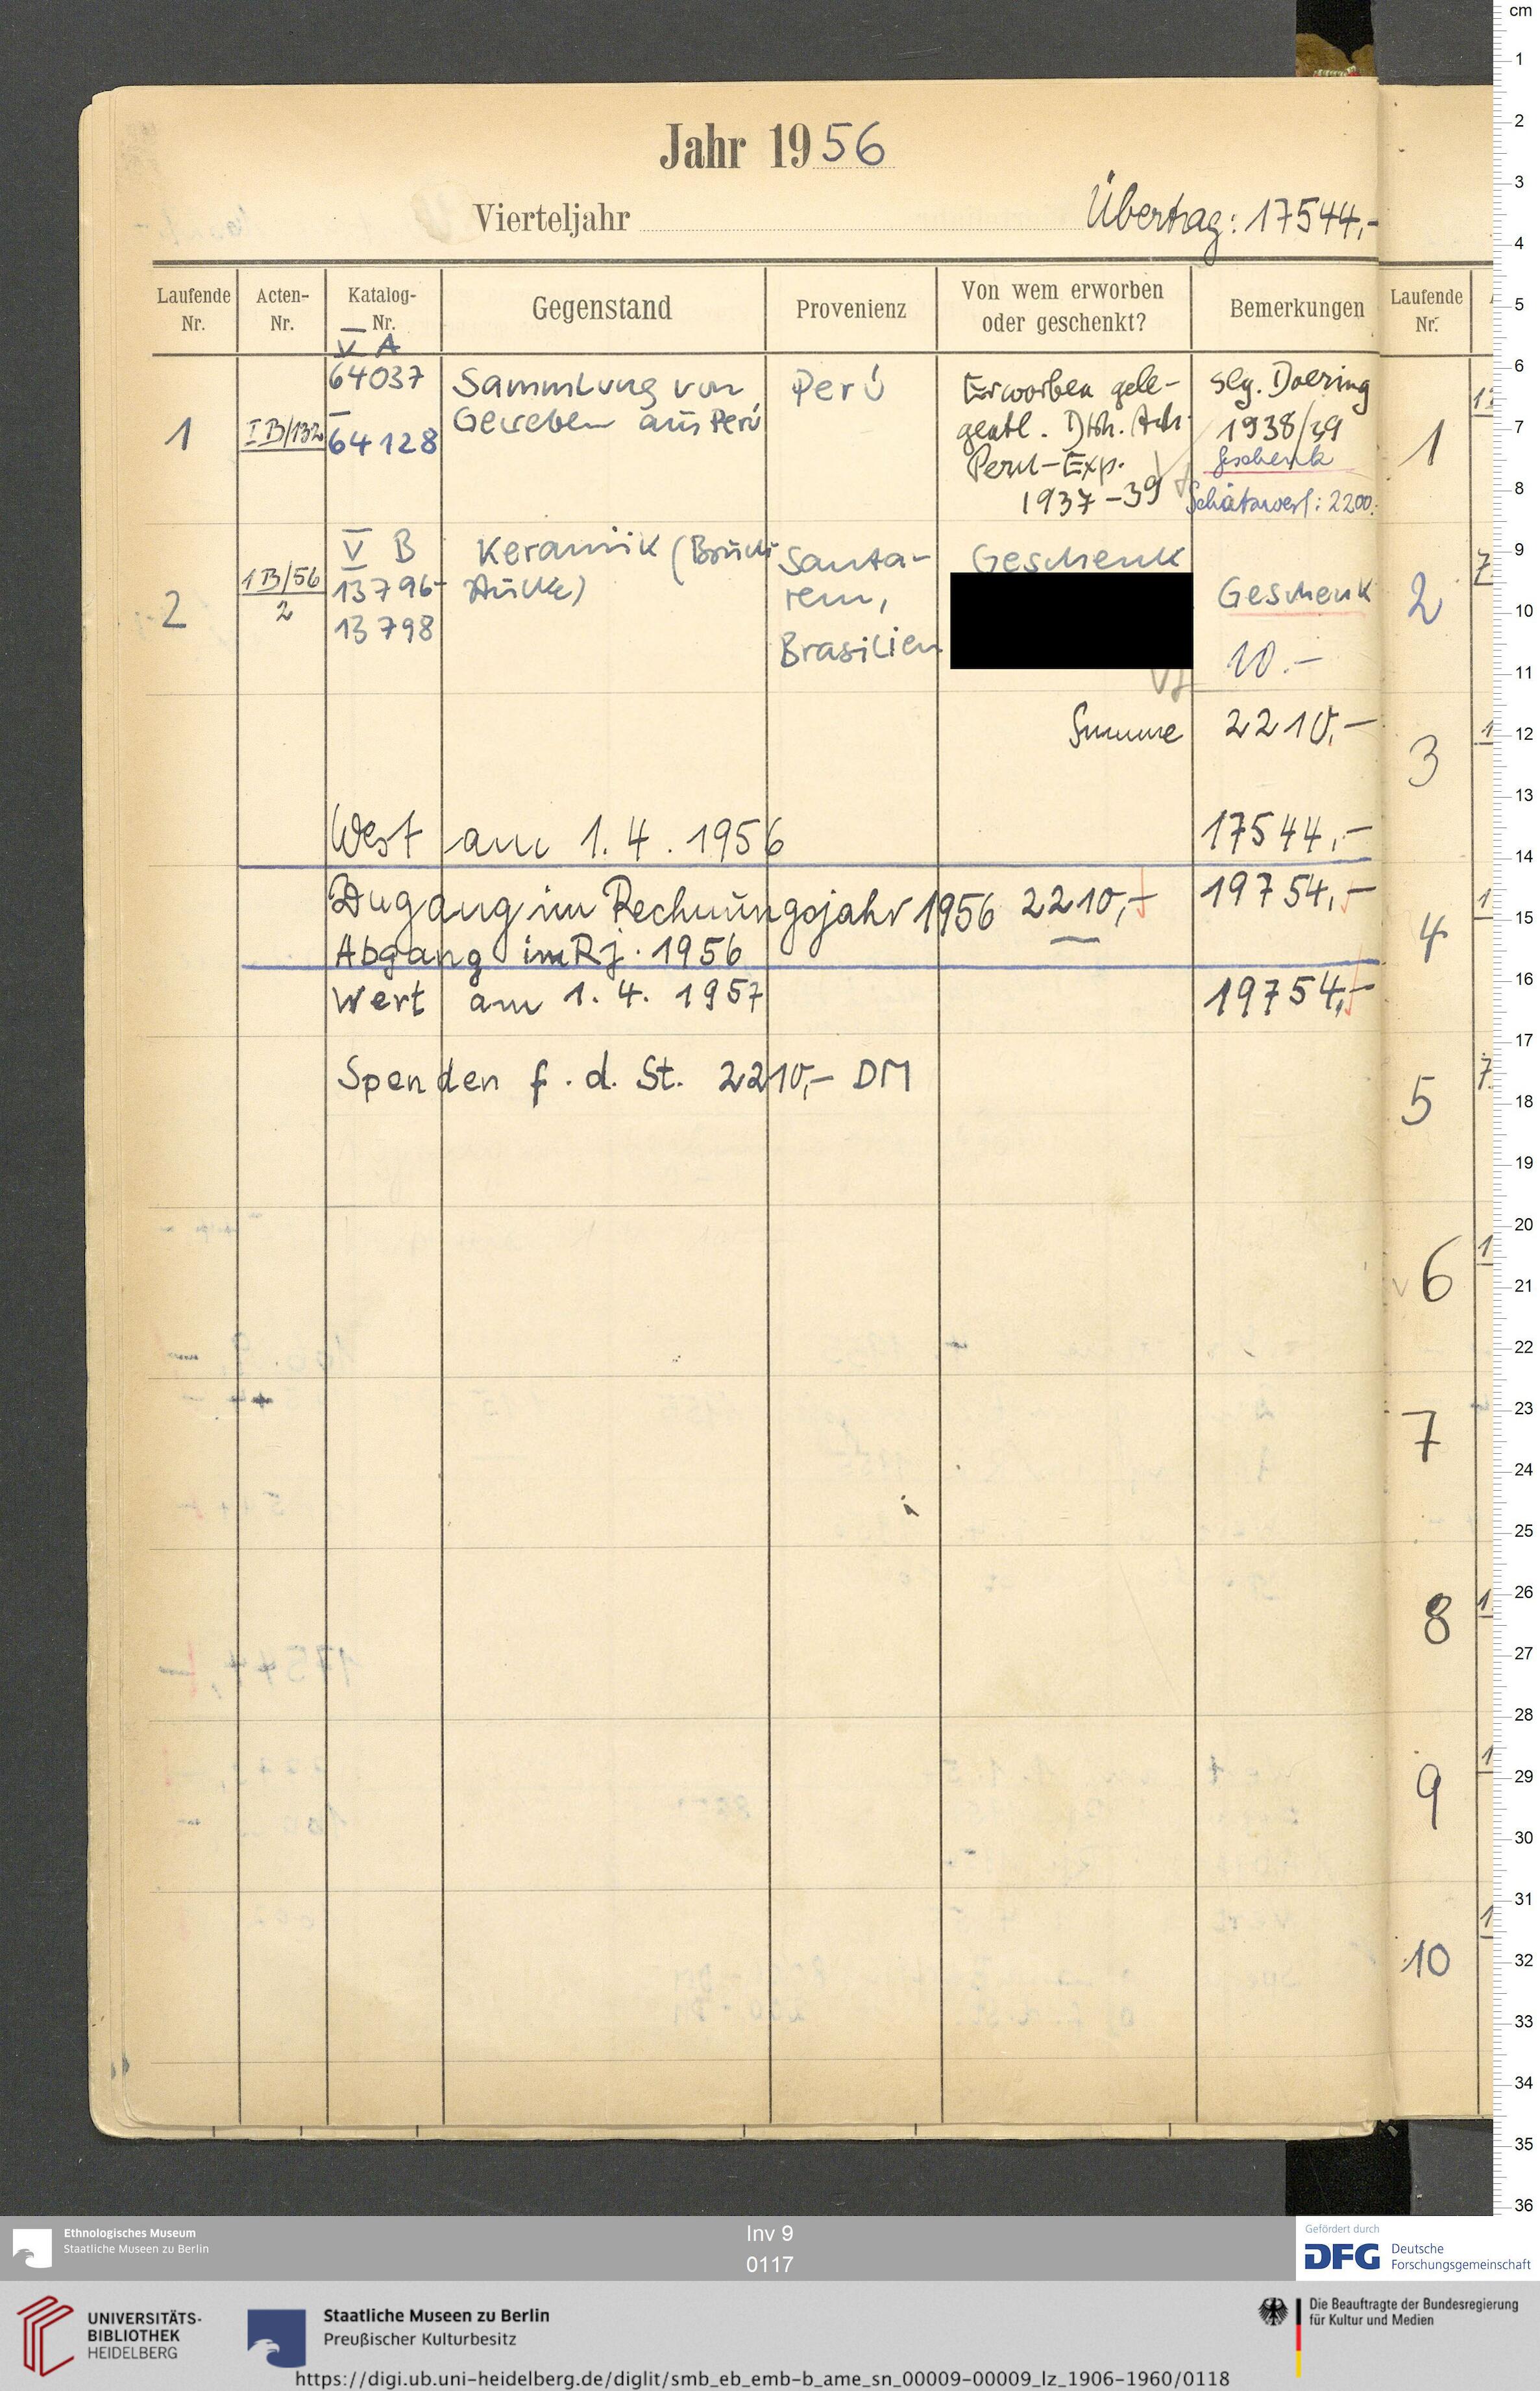 Jahr 1956
Vierteljahr
Übertrag: 17544,-
Laufende Nr.
Acten-Nr.
Katalog-Nr.
Gegenstand
Provenienz
Von wem erworben oder geschenkt?
Bemerkungen
Laufende Nr.
1
I B/132
V A
64037
-
64128
Sammlung von
Geweben aus Perú
Perú
Erworben gele-
gentl. Dtsch.
Peru-Exp.
1937-39
Slg. Doering
1938/39
Geschenk
Schätzwert: 2200.-
2
1B/56
2
V B
13796-
13798
Keramik (Bruch-
stücke)
Santa-
rem,
Brasilien
Geschenk
Geschenk
10.-
Summe 2210,-
Wert am 1.4.1956 17544,-
Zugang im Rechnungsjahr 1956 2210,- 19754,-
Abgang im Rj. 1956 -
Wert am 1.4.1957 19754,-
Spenden f. d. St. 2210,- DM
1
2
3
4
5
6
7
8
9
10
cm
1
2
3
4
5
6
7
8
9
10
11
12
13
14
15
16
17
18
19
20
21
22
23
24
25
26
27
28
29
30
31
32
33
34
35
36
Ethnologisches Museum
Staatliche Museen zu Berlin
Inv 9
0117
Gefördert durch
DFG Deutsche
Forschungsgemeinschaft
UNIVERSITÄTS-
BIBLIOTHEK
HEIDELBERG
Staatliche Museen zu Berlin
Preußischer Kulturbesitz
Die Beauftragte der Bundesregierung
für Kultur und Medien
https://digi.ub.uni-heidelberg.de/diglit/smb_eb_emb-b_ame_sn_00009-00009_lz_1906-1960/0118